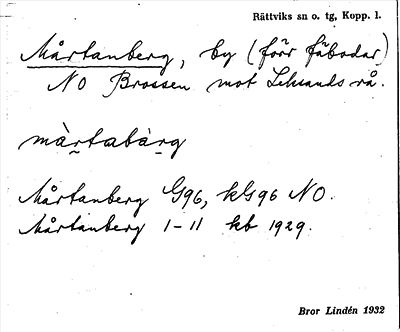 Rättviks sn o. tg, Kopp. l.
Mårtanberg, by (förr fäbodar)
NO Brossen mot Leksands rå.
màrtabàrg
Mårtanberg G96, kG96 NO.
Mårtanberg 1-11 kb 1929.
Bror Lindén 1932